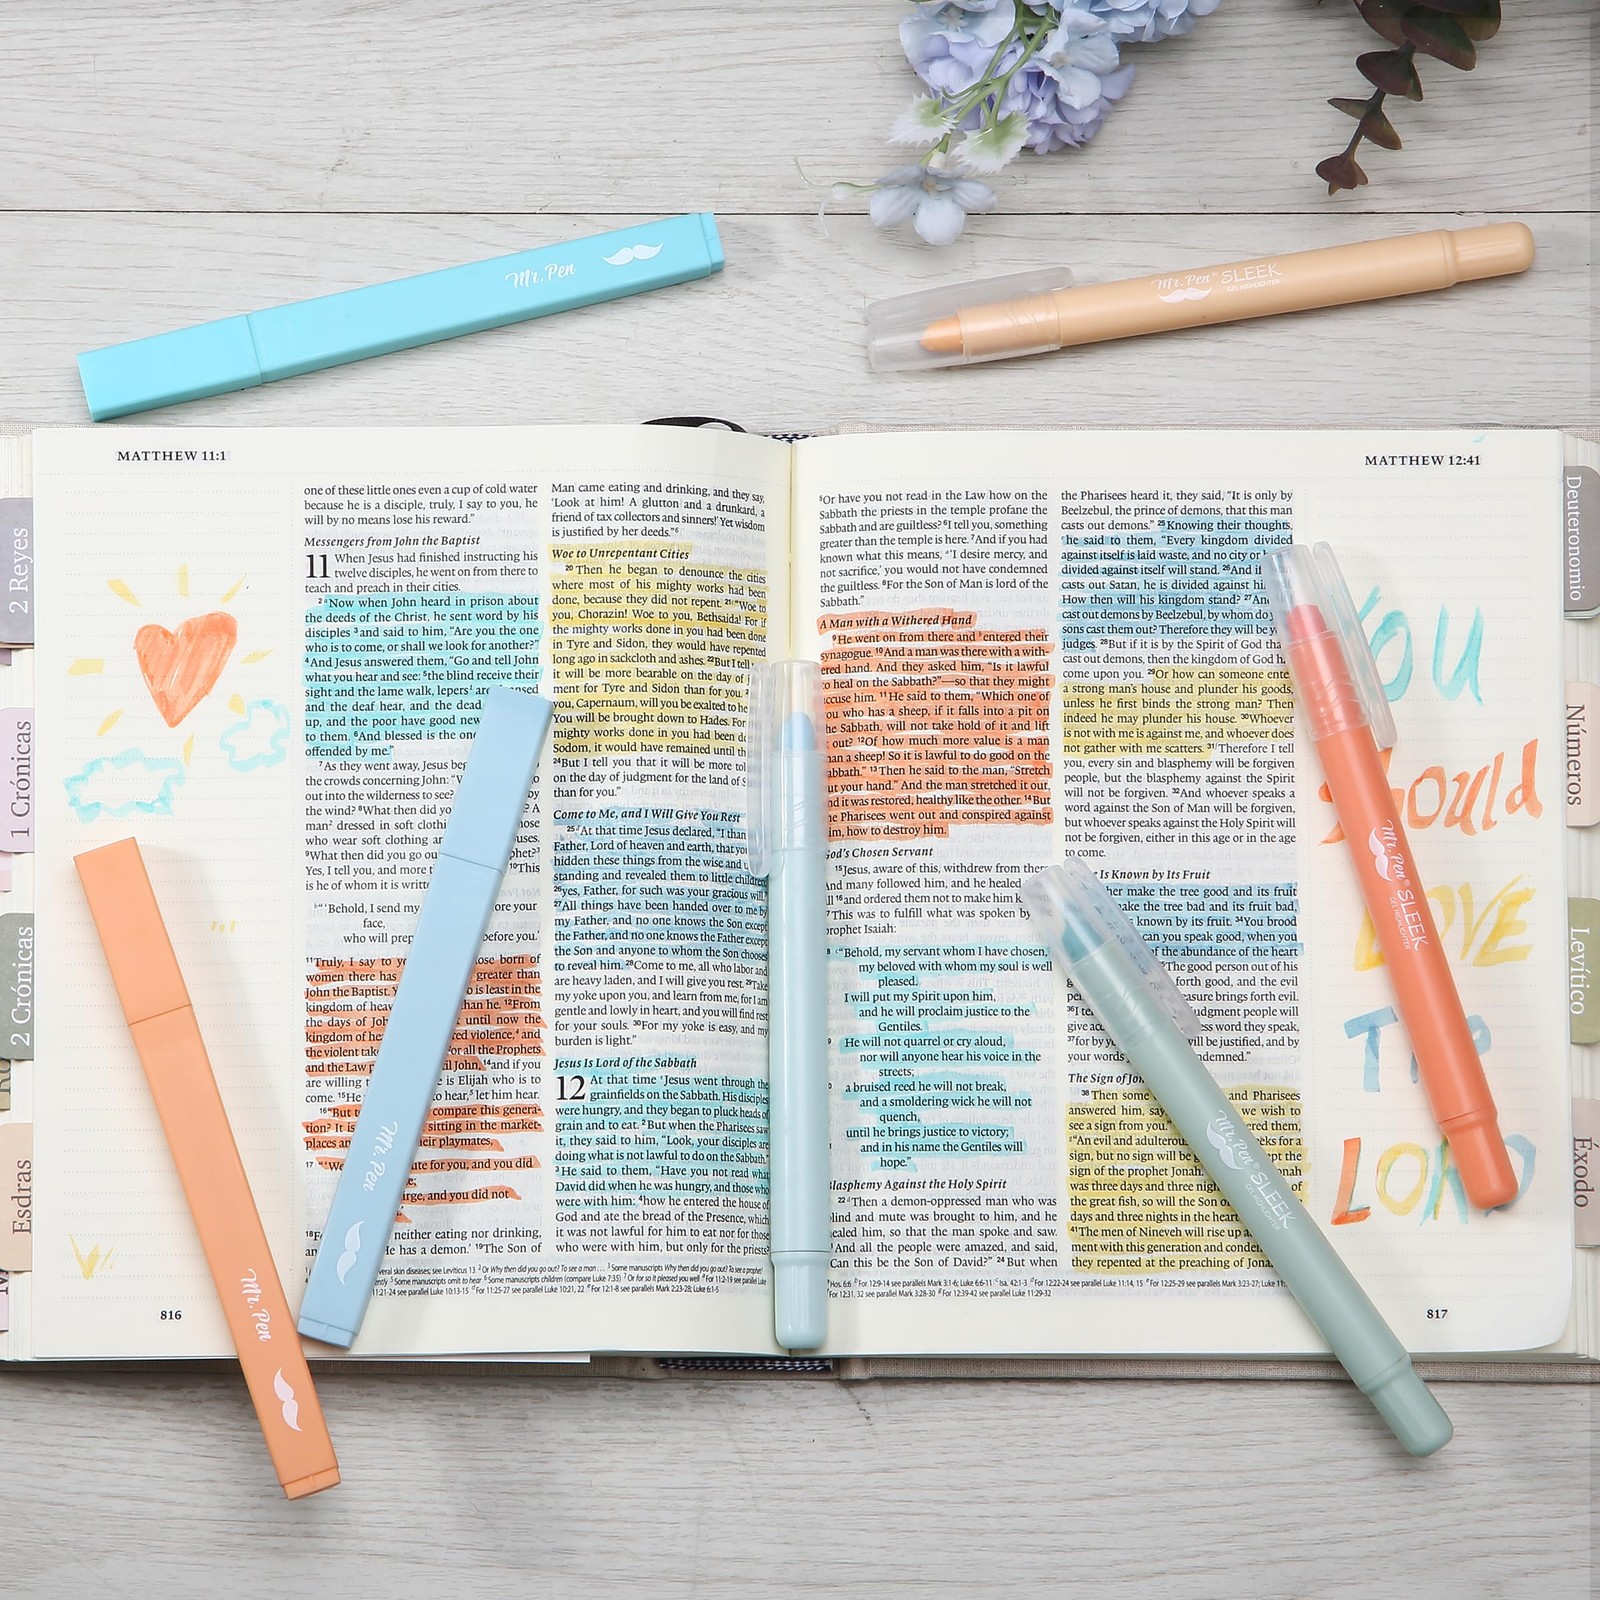 Mr. Pen
Mr. Pen® SLEEK
GEL HIGHLIGHTER
MATTHEW 11:1
one of these little ones even a cup of cold water
because he is a disciple, truly, I say to you, he
will by no means lose his reward."
Messengers from John the Baptist
11 When Jesus had finished instructing his
twelve disciples, he went on from there to
teach and preach in their cities.
2 Now when John heard in prison about
the deeds of the Christ, he sent word by his
disciples 3 and said to him, "Are you the one
who is to come, or shall we look for another?"
4 And Jesus answered them, "Go and tell John
what you hear and see: 5 the blind receive their
sight and the lame walk, lepers are
and the deaf hear, and the dead
up, and the poor have good new
to them. 6 And blessed is the one
offended by me."
7 As they went away, Jesus beg
the crowds concerning John: "W
out into the wilderness to see?
the wind? 8 What then did yo A
man dressed in soft clothi hose
who wear soft clothing ar uses.
9 What then did you go ou phet?
Yes, I tell you, and more t 10 This
is he of whom it is writt
"'Behold, I send my ore your
face,
who will prep before you.'
11 Truly, I say to yo ose born of
women there has greater than
John the Baptist. Y o is least in the
kingdom of heav than he. 12 From
the days of Joh until now the
kingdom of he ed violence, and
the violent take or all the Prophets
and the Law p il John, 14 and if you
are willing t e is Elijah who is to
come. 15 He to hear, let him hear.
16 "But to compare this genera-
tion? It is sitting in the market-
places an eir playmates,
17 "'We ute for you, and you did
e;
irge, and you did not
neither eating nor drinking,
He has a demon.' 19 The Son of
Man came eating and drinking, and they say,
'Look at him! A glutton and a drunkard, a
friend of tax collectors and sinners!' Yet wisdom
is justified by her deeds."
Woe to Unrepentant Cities
20 Then he began to denounce the cities
where most of his mighty works had been
done, because they did not repent. 21 "Woe to
you, Chorazin! Woe to you, Bethsaida! For if
the mighty works done in you had been done
in Tyre and Sidon, they would have repented
long ago in sackcloth and ashes. 22 But I tell
it will be more bearable on the day of
ment for Tyre and Sidon than for you.
you, Capernaum, will you be exalted to he
You will be brought down to Hades. For
mighty works done in you had been do
Sodom, it would have remained until th
24 But I tell you that it will be more tol
on the day of judgment for the land of S
than for you."
Come to Me, and I Will Give You Rest
25 At that time Jesus declared, "I than
Father, Lord of heaven and earth, that you
hidden these things from the wise and u
standing and revealed them to little children;
26 yes, Father, for such was your gracious will.
27 All things have been handed over to me by
my Father, and no one knows the Son except
the Father, and no one knows the Father except
the Son and anyone to whom the Son chooses
to reveal him. 28 Come to me, all who labor and
are heavy laden, and I will give you rest. 29 Take
my yoke upon you, and learn from me, for I am
gentle and lowly in heart, and you will find rest
for your souls. 30 For my yoke is easy, and my
burden is light."
Jesus Is Lord of the Sabbath
12 At that time Jesus went through the
grainfields on the Sabbath. His disciples
were hungry, and they began to pluck heads of
grain and to eat. 2 But when the Pharisees saw
it, they said to him, "Look, your disciples are
doing what is not lawful to do on the Sabbath."
3 He said to them, "Have you not read what
David did when he was hungry, and those who
were with him: 4 how he entered the house of
God and ate the bread of the Presence, which
it was not lawful for him to eat nor for those
who were with him, but only for the priests?
816
MATTHEW 12:41
5 Or have you not read in the Law how on the
Sabbath the priests in the temple profane the
Sabbath and are guiltless? 6 I tell you, something
greater than the temple is here. 7 And if you had
known what this means, 'I desire mercy, and
not sacrifice,' you would not have condemned
the guiltless. 8 For the Son of Man is lord of the
Sabbath."
A Man with a Withered Hand
9 He went on from there and entered their
synagogue. 10 And a man was there with a with-
ered hand. And they asked him, "Is it lawful
to heal on the Sabbath?"—so that they might
accuse him. 11 He said to them, "Which one of
you who has a sheep, if it falls into a pit on
the Sabbath, will not take hold of it and lift
it out? 12 Of how much more value is a man
than a sheep! So it is lawful to do good on the
Sabbath." 13 Then he said to the man, "Stretch
out your hand." And the man stretched it out,
and it was restored, healthy like the other. 14 But
the Pharisees went out and conspired against
him, how to destroy him.
God's Chosen Servant
15 Jesus, aware of this, withdrew from there.
And many followed him, and he healed
all 16 and ordered them not to make him k
17 This was to fulfill what was spoken by
prophet Isaiah:
18 "Behold, my servant whom I have chosen,
my beloved with whom my soul is well
pleased.
I will put my Spirit upon him,
and he will proclaim justice to the
Gentiles.
He will not quarrel or cry aloud,
nor will anyone hear his voice in the
streets;
a bruised reed he will not break,
and a smoldering wick he will not
quench,
until he brings justice to victory;
and in his name the Gentiles will
hope."
Blasphemy Against the Holy Spirit
22 Then a demon-oppressed man who was
blind and mute was brought to him, and he
healed him, so that the man spoke and saw.
And all the people were amazed, and said,
"Can this be the Son of David?" 24 But when
the Pharisees heard it, they said, "It is only by
Beelzebul, the prince of demons, that this man
casts out demons." 25 Knowing their thoughts,
he said to them, "Every kingdom divided
against itself is laid waste, and no city or
divided against itself will stand. 26 And if
casts out Satan, he is divided against hi
How then will his kingdom stand? 27 And
cast out demons by Beelzebul, by whom do yo
sons cast them out? Therefore they will be yo
judges. 28 But if it is by the Spirit of God tha
cast out demons, then the kingdom of God h
come upon you. 29 Or how can someone ente
a strong man's house and plunder his goods,
unless he first binds the strong man? Then
indeed he may plunder his house. 30 Whoever
is not with me is against me, and whoever does
not gather with me scatters. 31 Therefore I tell
you, every sin and blasphemy will be forgiven
people, but the blasphemy against the Spirit
will not be forgiven. 32 And whoever speaks a
word against the Son of Man will be forgiven,
but whoever speaks against the Holy Spirit will
not be forgiven, either in this age or in the age
to come.
Is Known by Its Fruit
her make the tree good and its fruit
make the tree bad and its fruit bad,
known by its fruit. 34 You brood
can you speak good, when you
the abundance of the heart
The good person out of his
forth good, and the evil
asure brings forth evil.
judgment people will
ess word they speak,
37 for by yo will be justified, and by
your words demned."
The Sign of Jon
38 Then some and Pharisees
answered him, say we wish to
see a sign from you." ered them,
"An evil and adulterou eeks for a
sign, but no sign will be g cept the
sign of the prophet Jonah. onah
was three days and three nigh
the great fish, so will the Son o
days and three nights in the heart
41 The men of Nineveh will rise up a
ment with this generation and conde
they repented at the preaching of Jona
817
YOU
Should
LOVE
THE
LORD
2 Reyes
1 Crónicas
2 Crónicas
Esdras
Deuteronomio
Números
Levítico
Éxodo
Mr. Pen
Mr. Pen
Mr. Pen® SLEEK
GEL HIGHLIGHTER
Mr. Pen® SLEEK
GEL HIGHLIGHTER